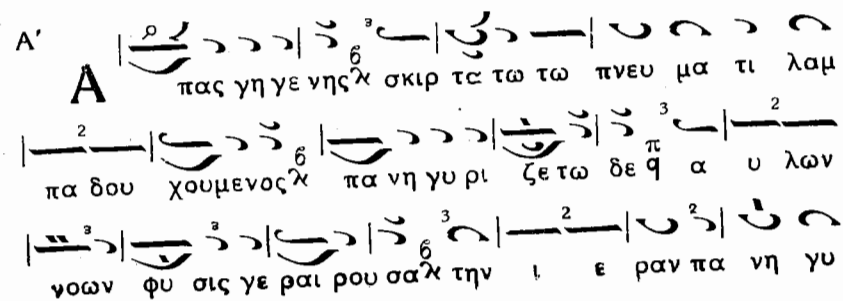 Α'
Απας γη γε νης σκιρ τα τω τω πνευ μα τι λαμ
πα δου χουμενος πα νη γυ ρι ζε τω δε α υ λων
νοων φυ σις γε ραι ρου σα την ι ε ραν πα νη γυ